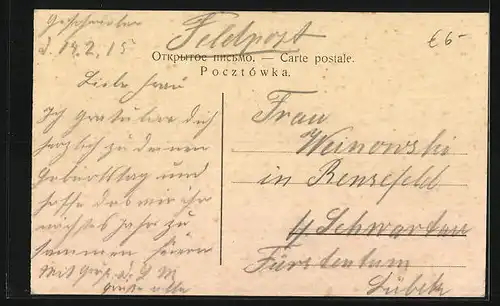 Geschrieben
d. 14.2.15
Feldpost
€6-
Открытое письмо. — Carte postale.
Pocztówka.
Liebe Frau
Ich gratuliere dich
herzlich zu deinen
Geburtstag und
hoffe das wir ihn
nächstes Jahr zu
sammen feiern
Mit Gruß
Grüße alle
Frau
Weinowski
in Rensefeld
b/ Schwartau
Fürstentum
Lübeck